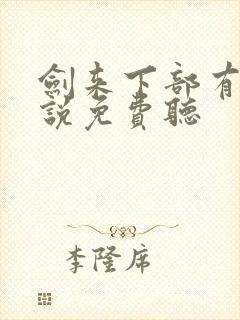 劍来下部有
說免費聽
李隆席